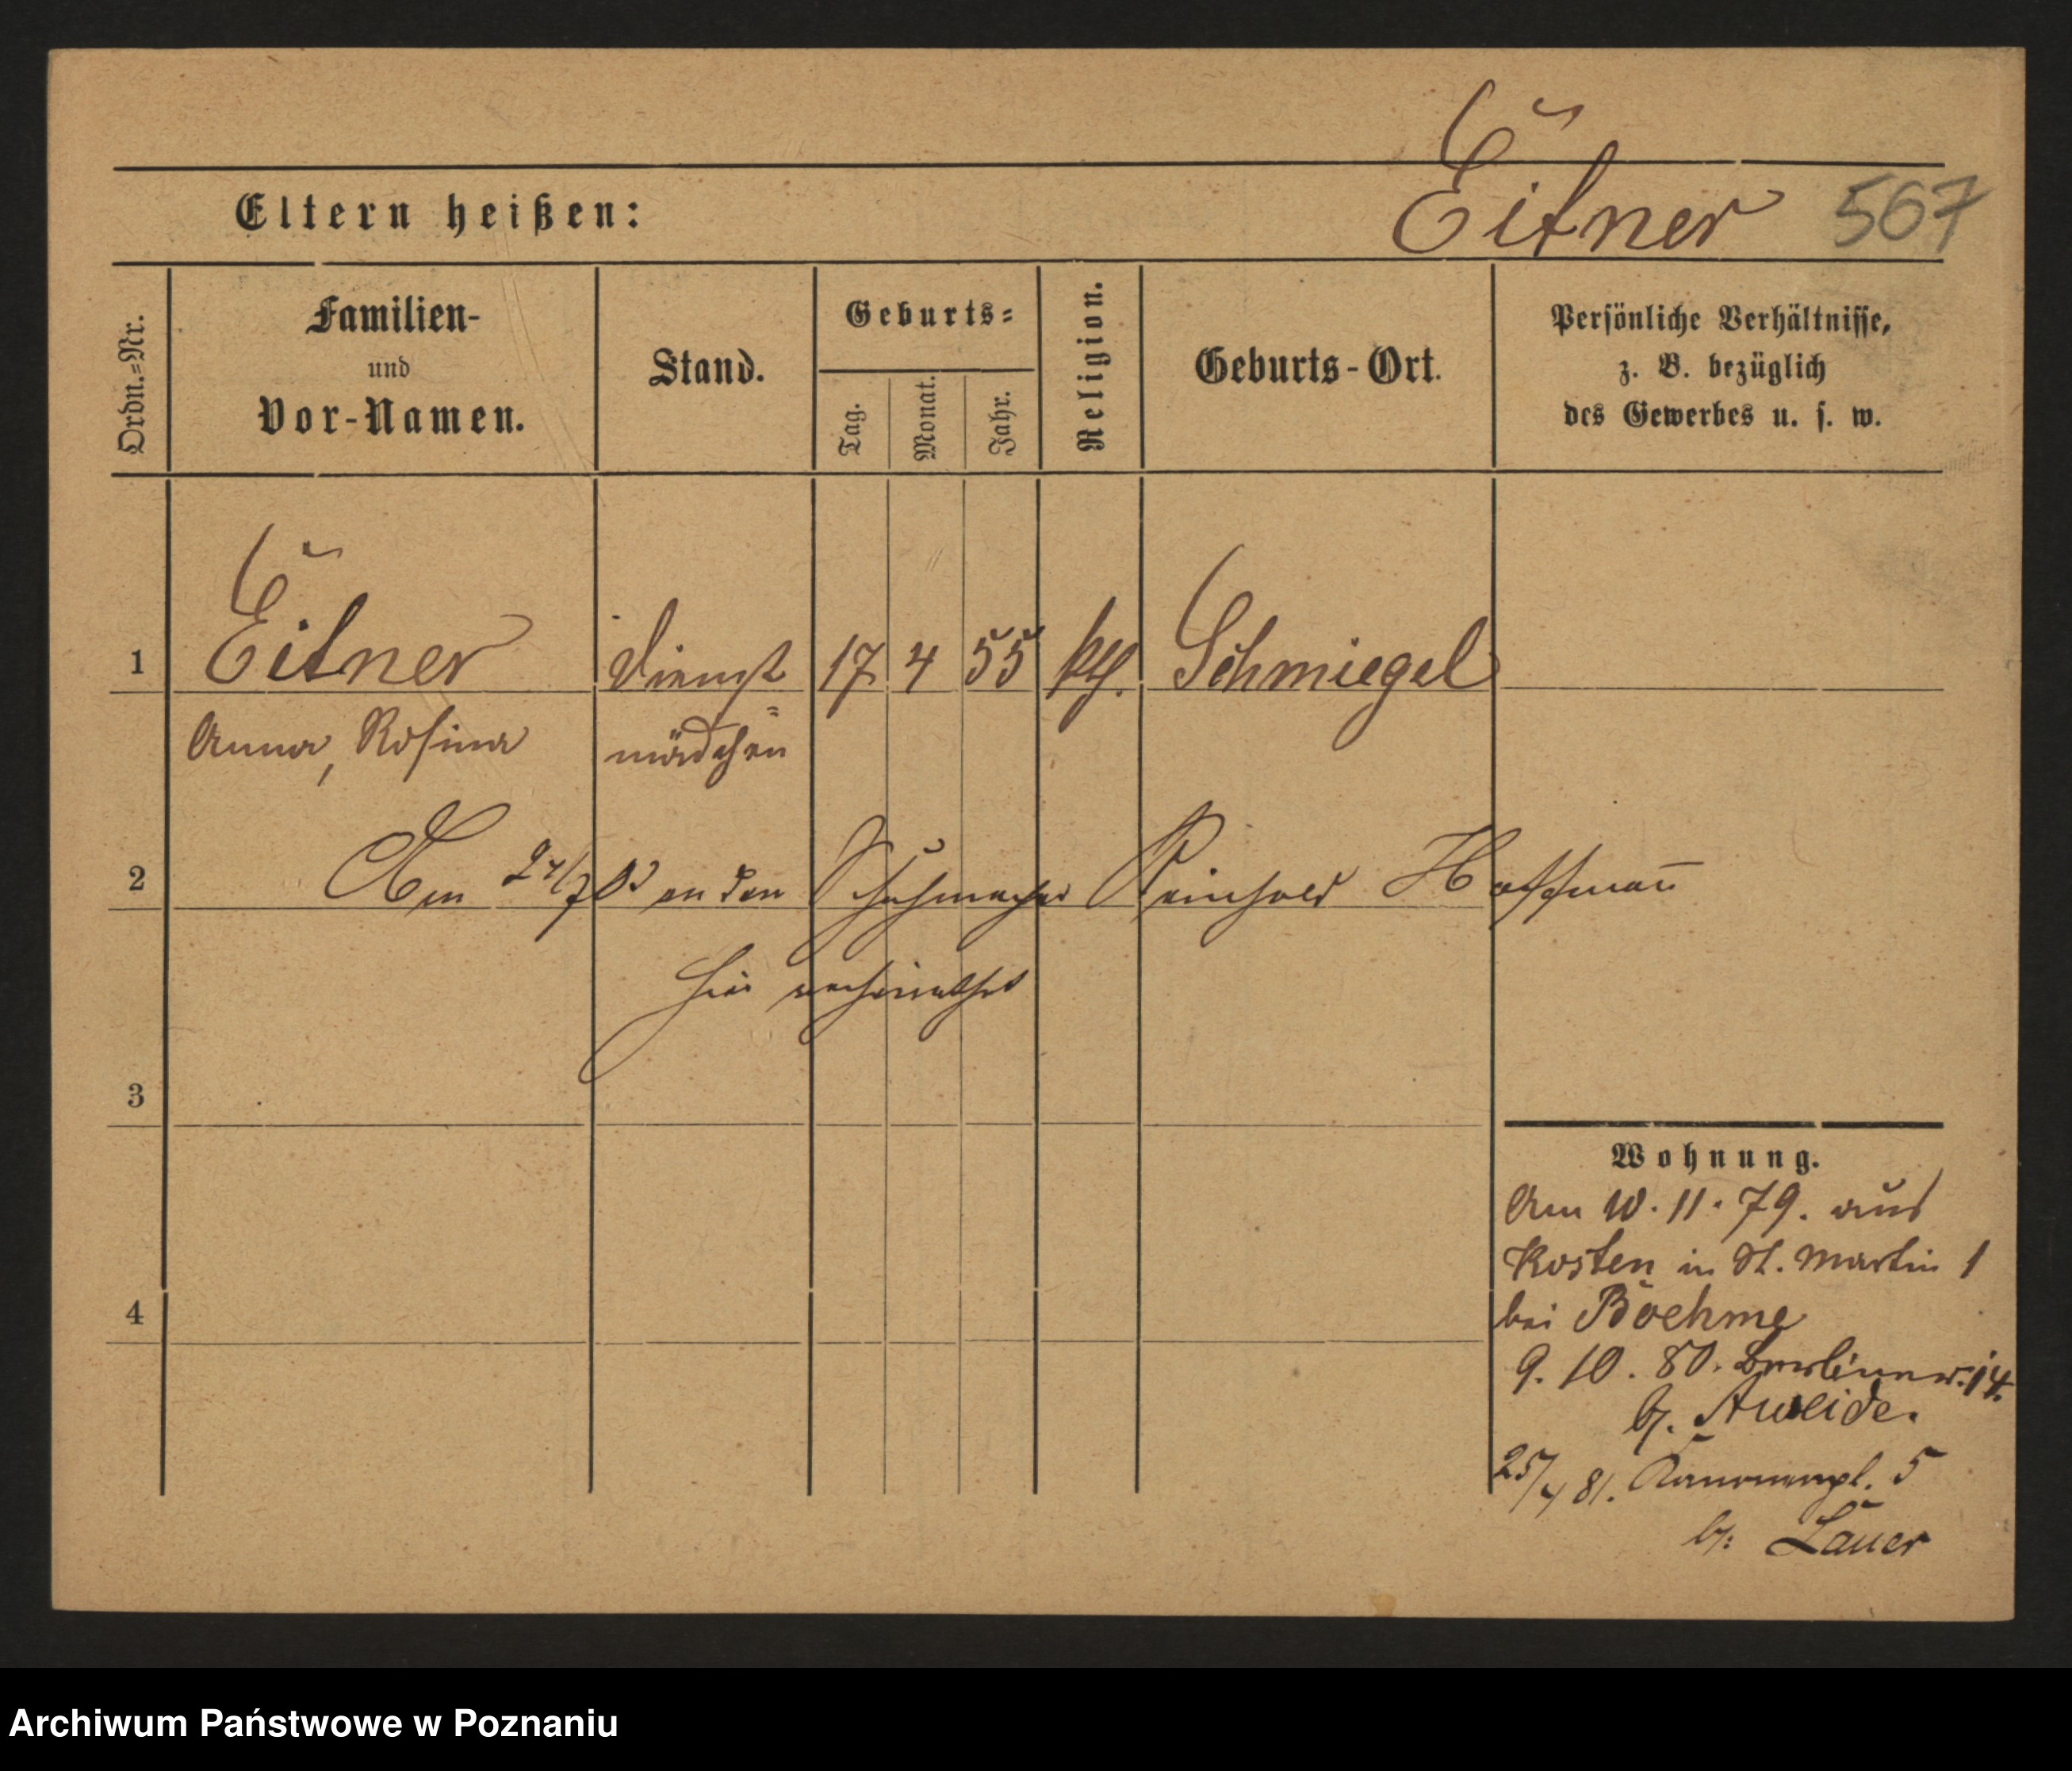 Eltern heißen:
Eitner 567
Ordn.=Nr.
Familien-
und
Vor-Namen.
Stand.
Geburts=
Tag.
Monat.
Jahr.
Religion.
Geburts-Ort.
Persönliche Verhältnisse,
z. B. bezüglich
des Gewerbes u. s. w.
1 Eitner Dienst 17 4 55 kth. Schmiegel
Anna, Rosina =mädchen
2 Am an den Schuhmacher Reinhold Hoffmann
hier verheirathet
3
Wohnung.
Am 10. 11. 79. aus
Kosten in St. Martin 1
4
bei Boehme
9. 10. 80. Berliner. 14.
b. Aweide.
25/4 81. Kanonenpl. 5
b: Lauer
Archiwum Państwowe w Poznaniu